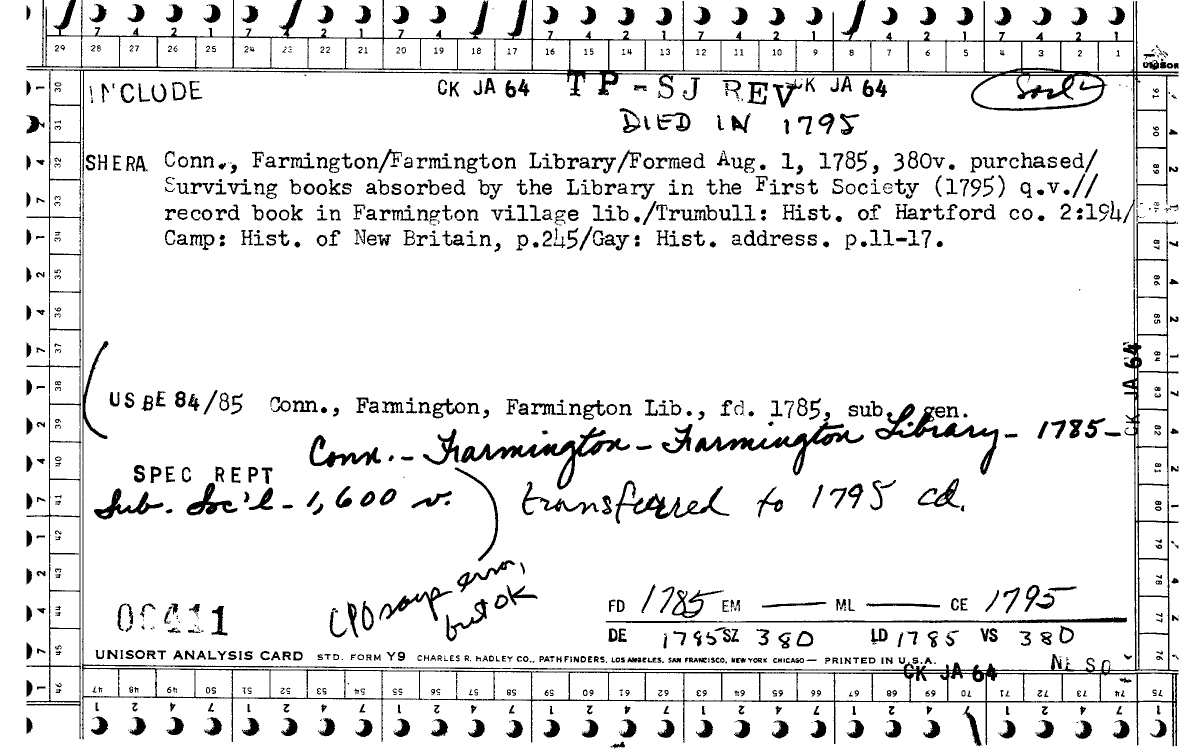 29 28 27 26 25 24 23 22 21 20 19 18 17 16 15 14 13 12 11 10 9 8 7 6 5 4 3 2 1
INCLUDE CK JA 64 TP-SJ REV CK JA 64 Soc'l
DIED IN 1795
SHERA Conn., Farmington/Farmington Library/Formed Aug. 1, 1785, 380v. purchased/
Surviving books absorbed by the Library in the First Society (1795) q.v.//
record book in Farmington village lib./Trumbull: Hist. of Hartford co. 2:194/
Camp: Hist. of New Britain, p.245/Gay: Hist. address. p.11-17.
CK JA 64
USBE 84/85 Conn., Farmington, Farmington Lib., fd. 1785, sub. gen.
Conn. - Farmington - Farmington Library - 1785 -
SPEC REPT
Sub. Soc'l - 1,600 v. transferred to 1795 cd.
CPO says error,
but OK
FD 1785 EM — ML — CE 1795
00411
DE 1785 SZ 380 LD 1785 VS 380
UNISORT ANALYSIS CARD STD. FORM Y9 CHARLES R. HADLEY CO., PATHFINDERS, LOS ANGELES, SAN FRANCISCO, NEW YORK CHICAGO — PRINTED IN U.S.A.
CK JA 64 NE SO
47 48 49 50 51 52 53 54 55 56 57 58 59 60 61 62 63 64 65 66 67 68 69 70 71 72 73 74 75